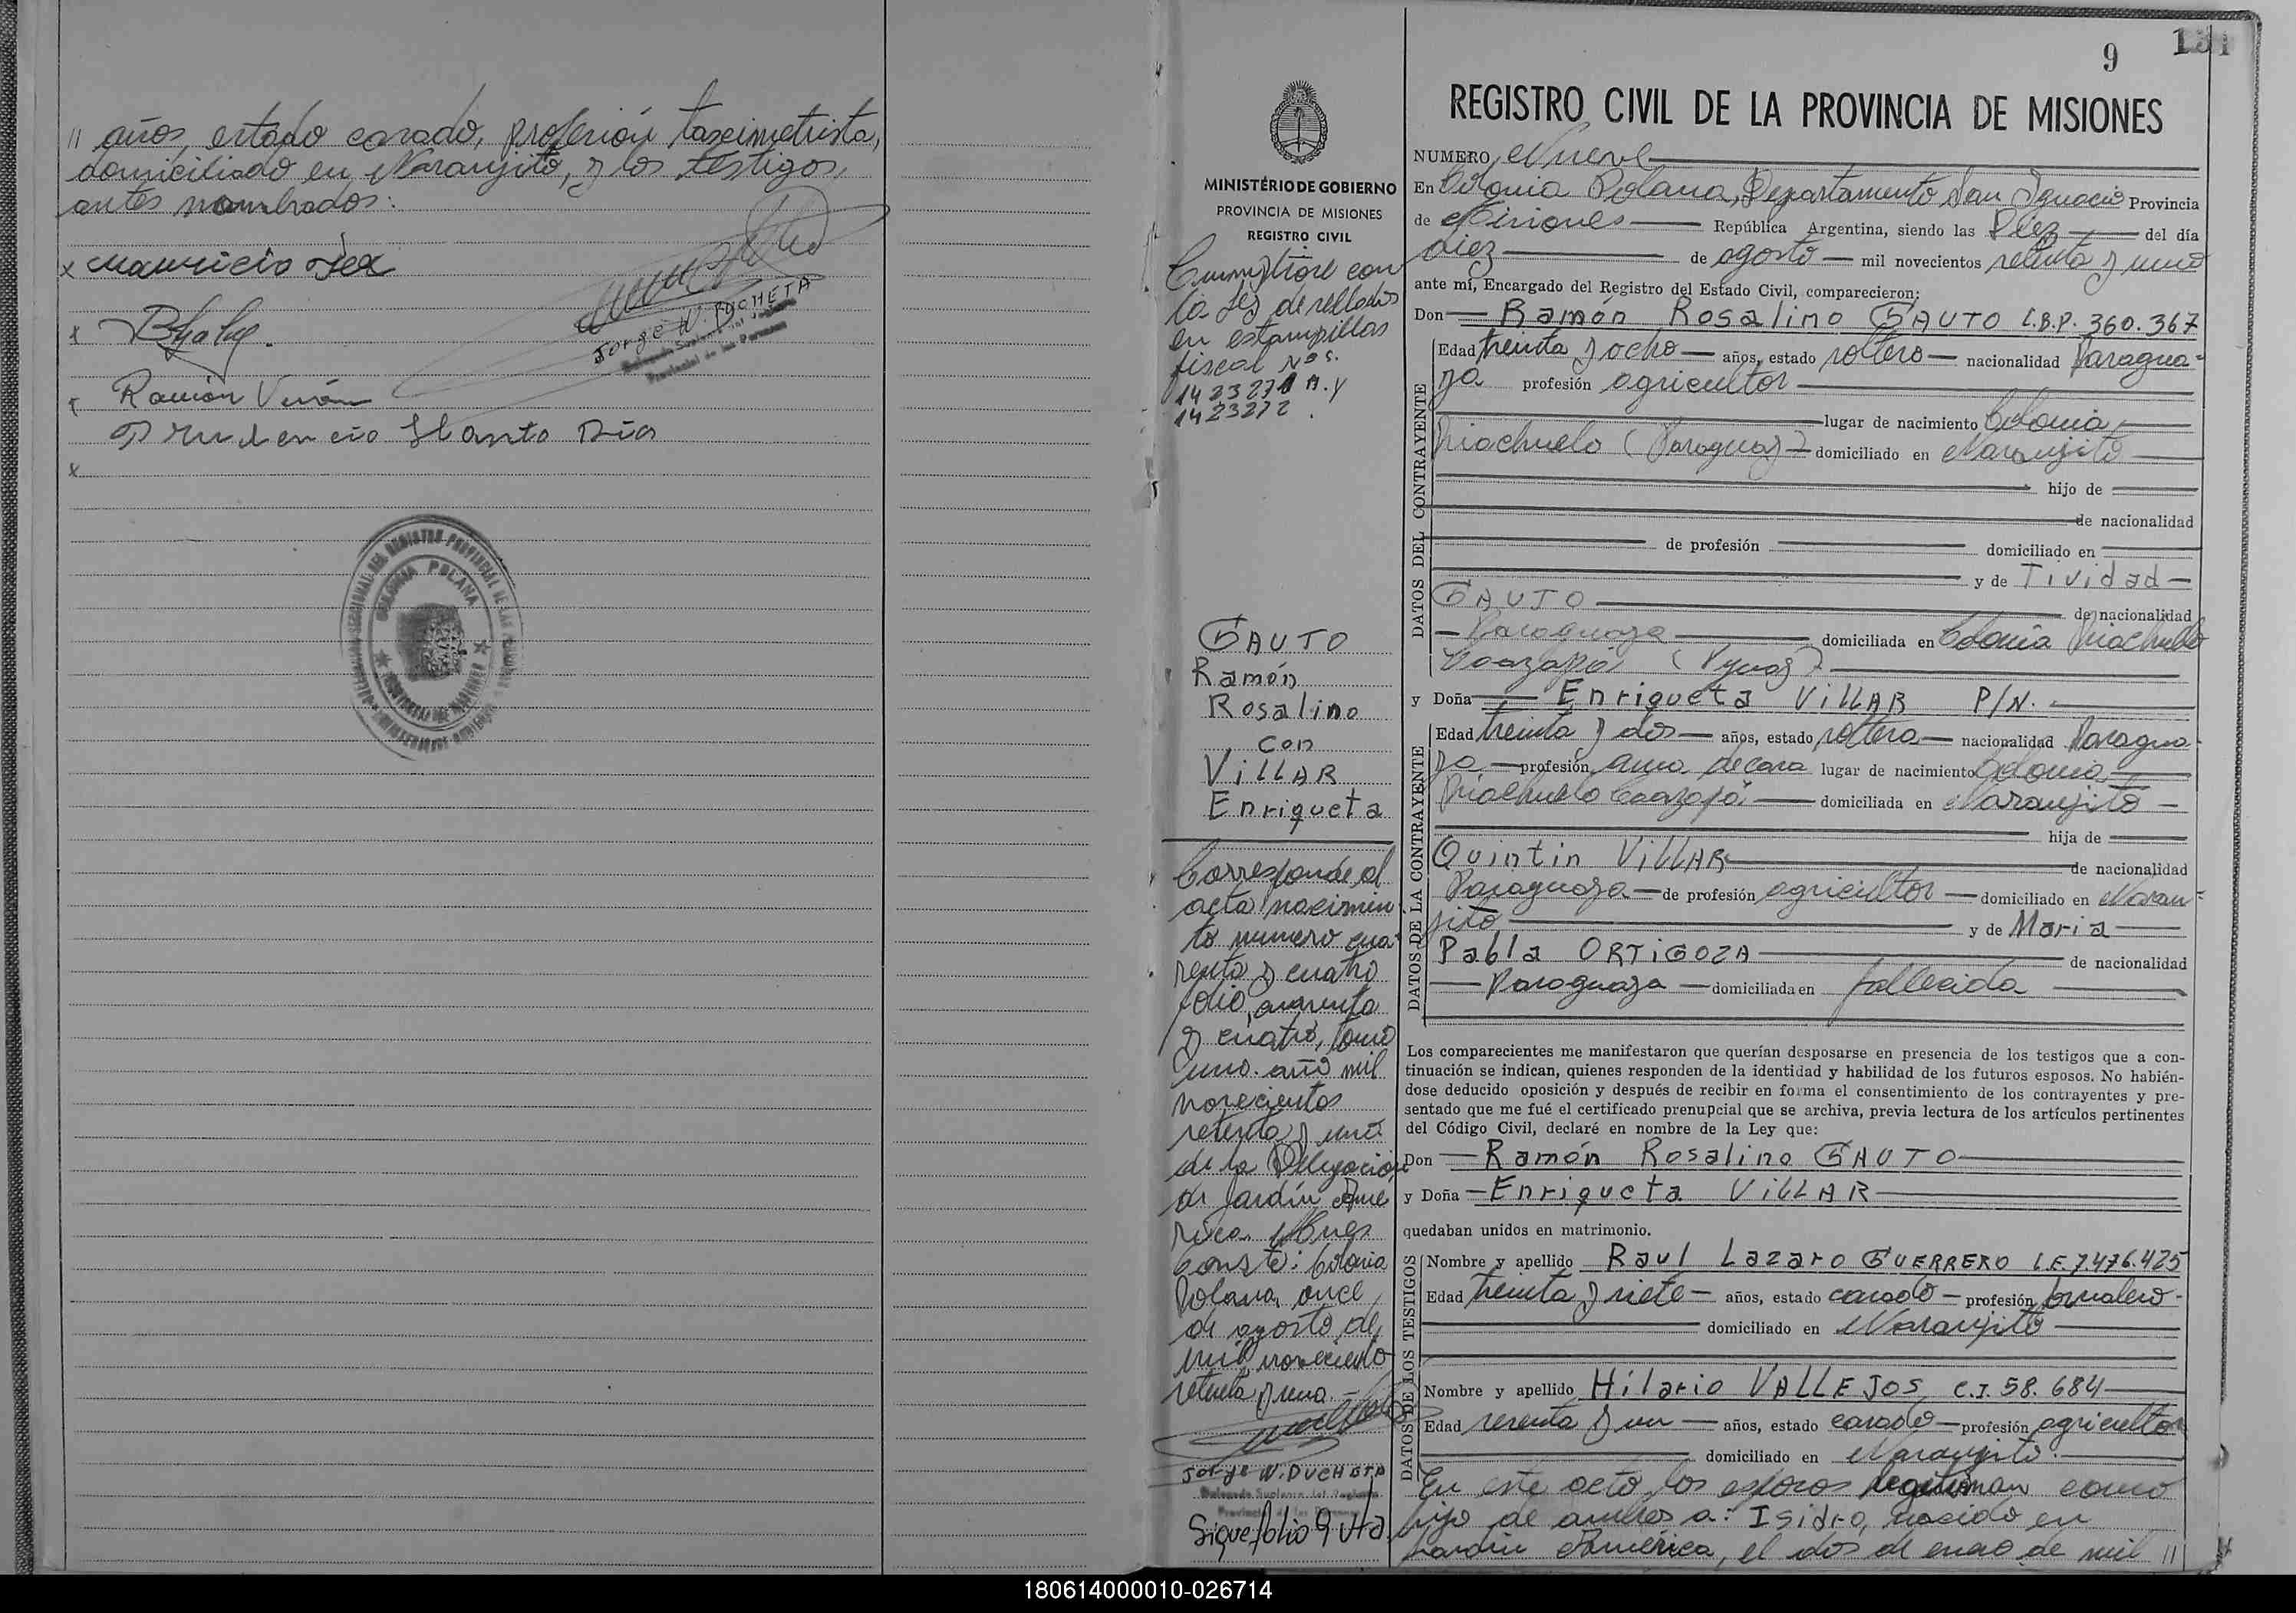 // años, estado casado, profesión taximetrista,
domiciliado en Naranjito, y los testigos
antes nombrados:
x Mauricio
x
x Ramón Verón
Prudencio
x
Jorge W. DUCHETA
COLONIA POLANA
9
REGISTRO CIVIL DE LA PROVINCIA DE MISIONES
MINISTERIO DE GOBIERNO
PROVINCIA DE MISIONES
REGISTRO CIVIL
Cumplióse con
la ley de sellados
en estampillas
fiscal Nos.
1423271 A. y
1423272.
GAUTO
Ramón
Rosalino
con
VILLAR
Enriqueta
Corresponde al
acta nacimien
to numero cua-
renta y cuatro
folio cuarenta
y cuatro, tomo
uno. año mil
novecientos
setenta y uno
de la Delegación
de Jardín Amé
rica. Mnes.
Conste: Colonia
Polana, once
de agosto de
mil noveciento
setenta y uno.-
Jorge W. DUCHETA
Sigue folio 9 vta.
NUMERO Nueve
En Colonia Polana, Departamento San Ignacio Provincia
de Misiones República Argentina, siendo las Diez del día
diez de agosto mil novecientos setenta y uno
ante mí, Encargado del Registro del Estado Civil, comparecieron:
Don Ramón Rosalino GAUTO C.B.P. 360.367
DATOS DEL CONTRAYENTE
Edad treinta y ocho años, estado soltero nacionalidad Paragua-
ya profesión agricultor
lugar de nacimiento Colonia
Riachuelo (Paraguay) domiciliado en Naranjito
hijo de
de nacionalidad
de profesión domiciliado en
y de Tividad
GAUTO de nacionalidad
Paraguaya domiciliada en Colonia Riachuelo
Caazapá (Pguay)
y Doña Enriqueta VILLAR P/N.
DATOS DE LA CONTRAYENTE
Edad treinta y dos años, estado soltera nacionalidad Paragua-
ya profesión ama de casa lugar de nacimiento Colonia
Riachuelo Caazapá domiciliada en Naranjito
hija de
Quintin VILLAR de nacionalidad
Paraguaya de profesión agricultor domiciliado en Naran-
jito y de Maria
Pabla ORTIGOZA de nacionalidad
Paraguaya domiciliada en fallecida
Los comparecientes me manifestaron que querían desposarse en presencia de los testigos que a con-
tinuación se indican, quienes responden de la identidad y habilidad de los futuros esposos. No habién-
dose deducido oposición y después de recibir en forma el consentimiento de los contrayentes y pre-
sentado que me fué el certificado prenupcial que se archiva, previa lectura de los artículos pertinentes
del Código Civil, declaré en nombre de la Ley que:
Don Ramón Rosalino GAUTO
y Doña Enriqueta VILLAR
quedaban unidos en matrimonio.
DATOS DE LOS TESTIGOS
Nombre y apellido Raul Lazaro GUERRERO L.E. 7.476.425
Edad treinta y siete años, estado casado profesión jornalero
domiciliado en Naranjito
Nombre y apellido Hilario VALLEJOS C.I. 58.684
Edad sesenta y un años, estado casado profesión agricultor
domiciliado en Naranjito.
En este acto los esposos legitiman como
hijo de ambos a: Isidro, nacido en
Jardin América, el dos de enero de mil //
180614000010-026714